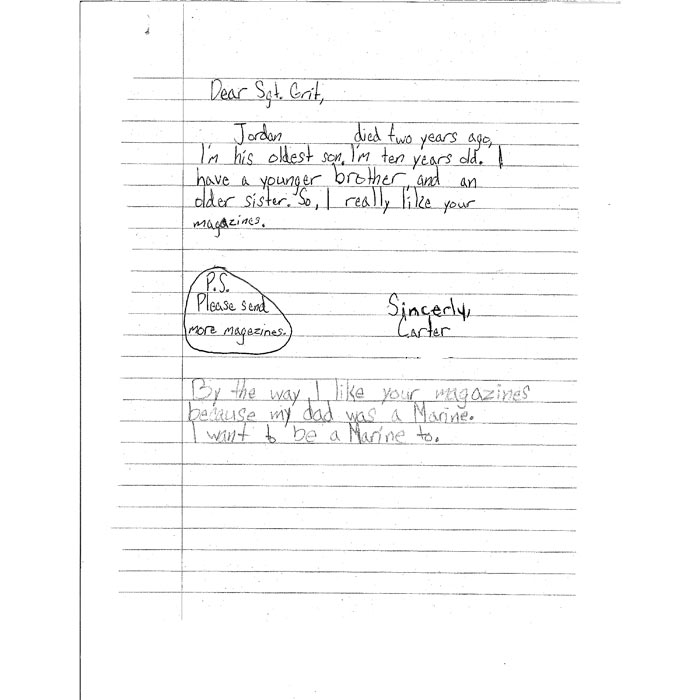 Dear Sgt. Grit,
Jordan died two years ago,
I'm his oldest son. I'm ten years old. I
have a younger brother, and an
older sister. So, I really like your
magazines.
P.S.
Please send
more magezines.
Sincerly,
Carter
By the way I like your magazines
because my dad was a Marine.
I want to be a Marine to.